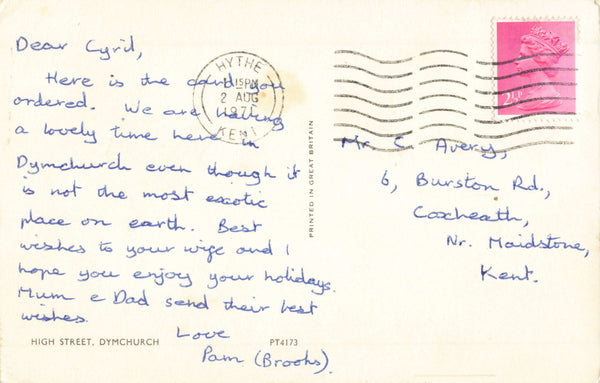 Dear Cyril,
Here is the card you
ordered. We are having
a lovely time here in
Dymchurch even though it
is not the most exotic
place on earth. Best
wishes to your wife and I
hope you enjoy your holidays.
Mum & Dad send their best
wishes.
Love
Pam (Brooks).
HIGH STREET, DYMCHURCH
PT4173
PRINTED IN GREAT BRITAIN
HYTHE
15PM
2 AUG
KENT
Mr. C. Avery,
6, Burston Rd.,
Coxheath,
Nr. Maidstone,
Kent.